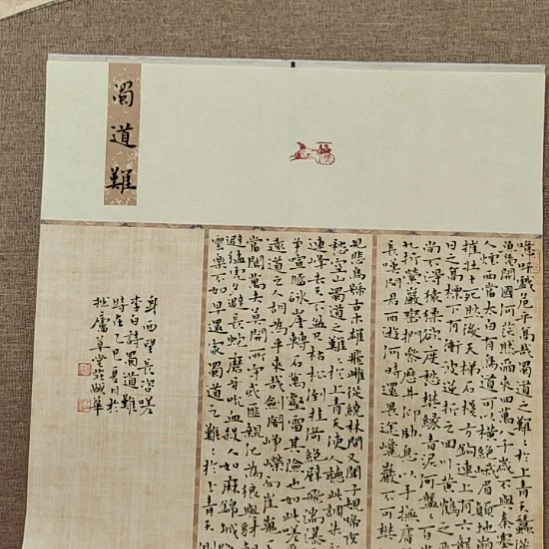 蜀道難
噫吁戲危乎高哉蜀道之難〻於上青天蠶叢
魚鳧開國何茫然爾來四萬八千歲不與秦塞
人煙西當太白有鳥道可以橫絕峨眉巔地崩
摧壯士死然後天梯石棧方鉤連上有六龍
日之高標下有衝波逆折之回川黃鶴之飛
尚不得猿猱欲度愁攀緣青泥何盤〻百
九折縈巖巒捫參歷井仰脅息以手撫膺
長嘆問君西遊何時還畏途巉巖不可攀
見悲鳥號古木雄飛雌從繞林間又聞子規啼夜
愁空山蜀道之難〻於上青天使人聽此凋朱
連峰去天不盈尺枯松倒挂倚絕壁飛湍瀑
爭喧豗砯崖轉石萬壑雷其險也如此嗟
遠道之人胡為乎來哉劍閣崢嶸而崔嵬
當關萬夫莫開所守或匪親化為狼與豺
避猛虎夕避長蛇磨牙吮血殺人如麻錦城
雲樂不如早還家蜀道之難〻於上青天側
身西望長咨嗟
李白詩蜀道難
時在乙巳夏月於
廬草堂